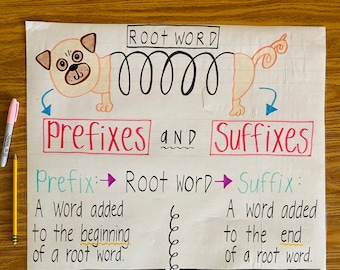 ROOT WORD
Prefixes AND Suffixes
Prefix: → ROOT WORD → Suffix:
A word added
to the beginning
of a root word.
A word added
to the end
of a root word.